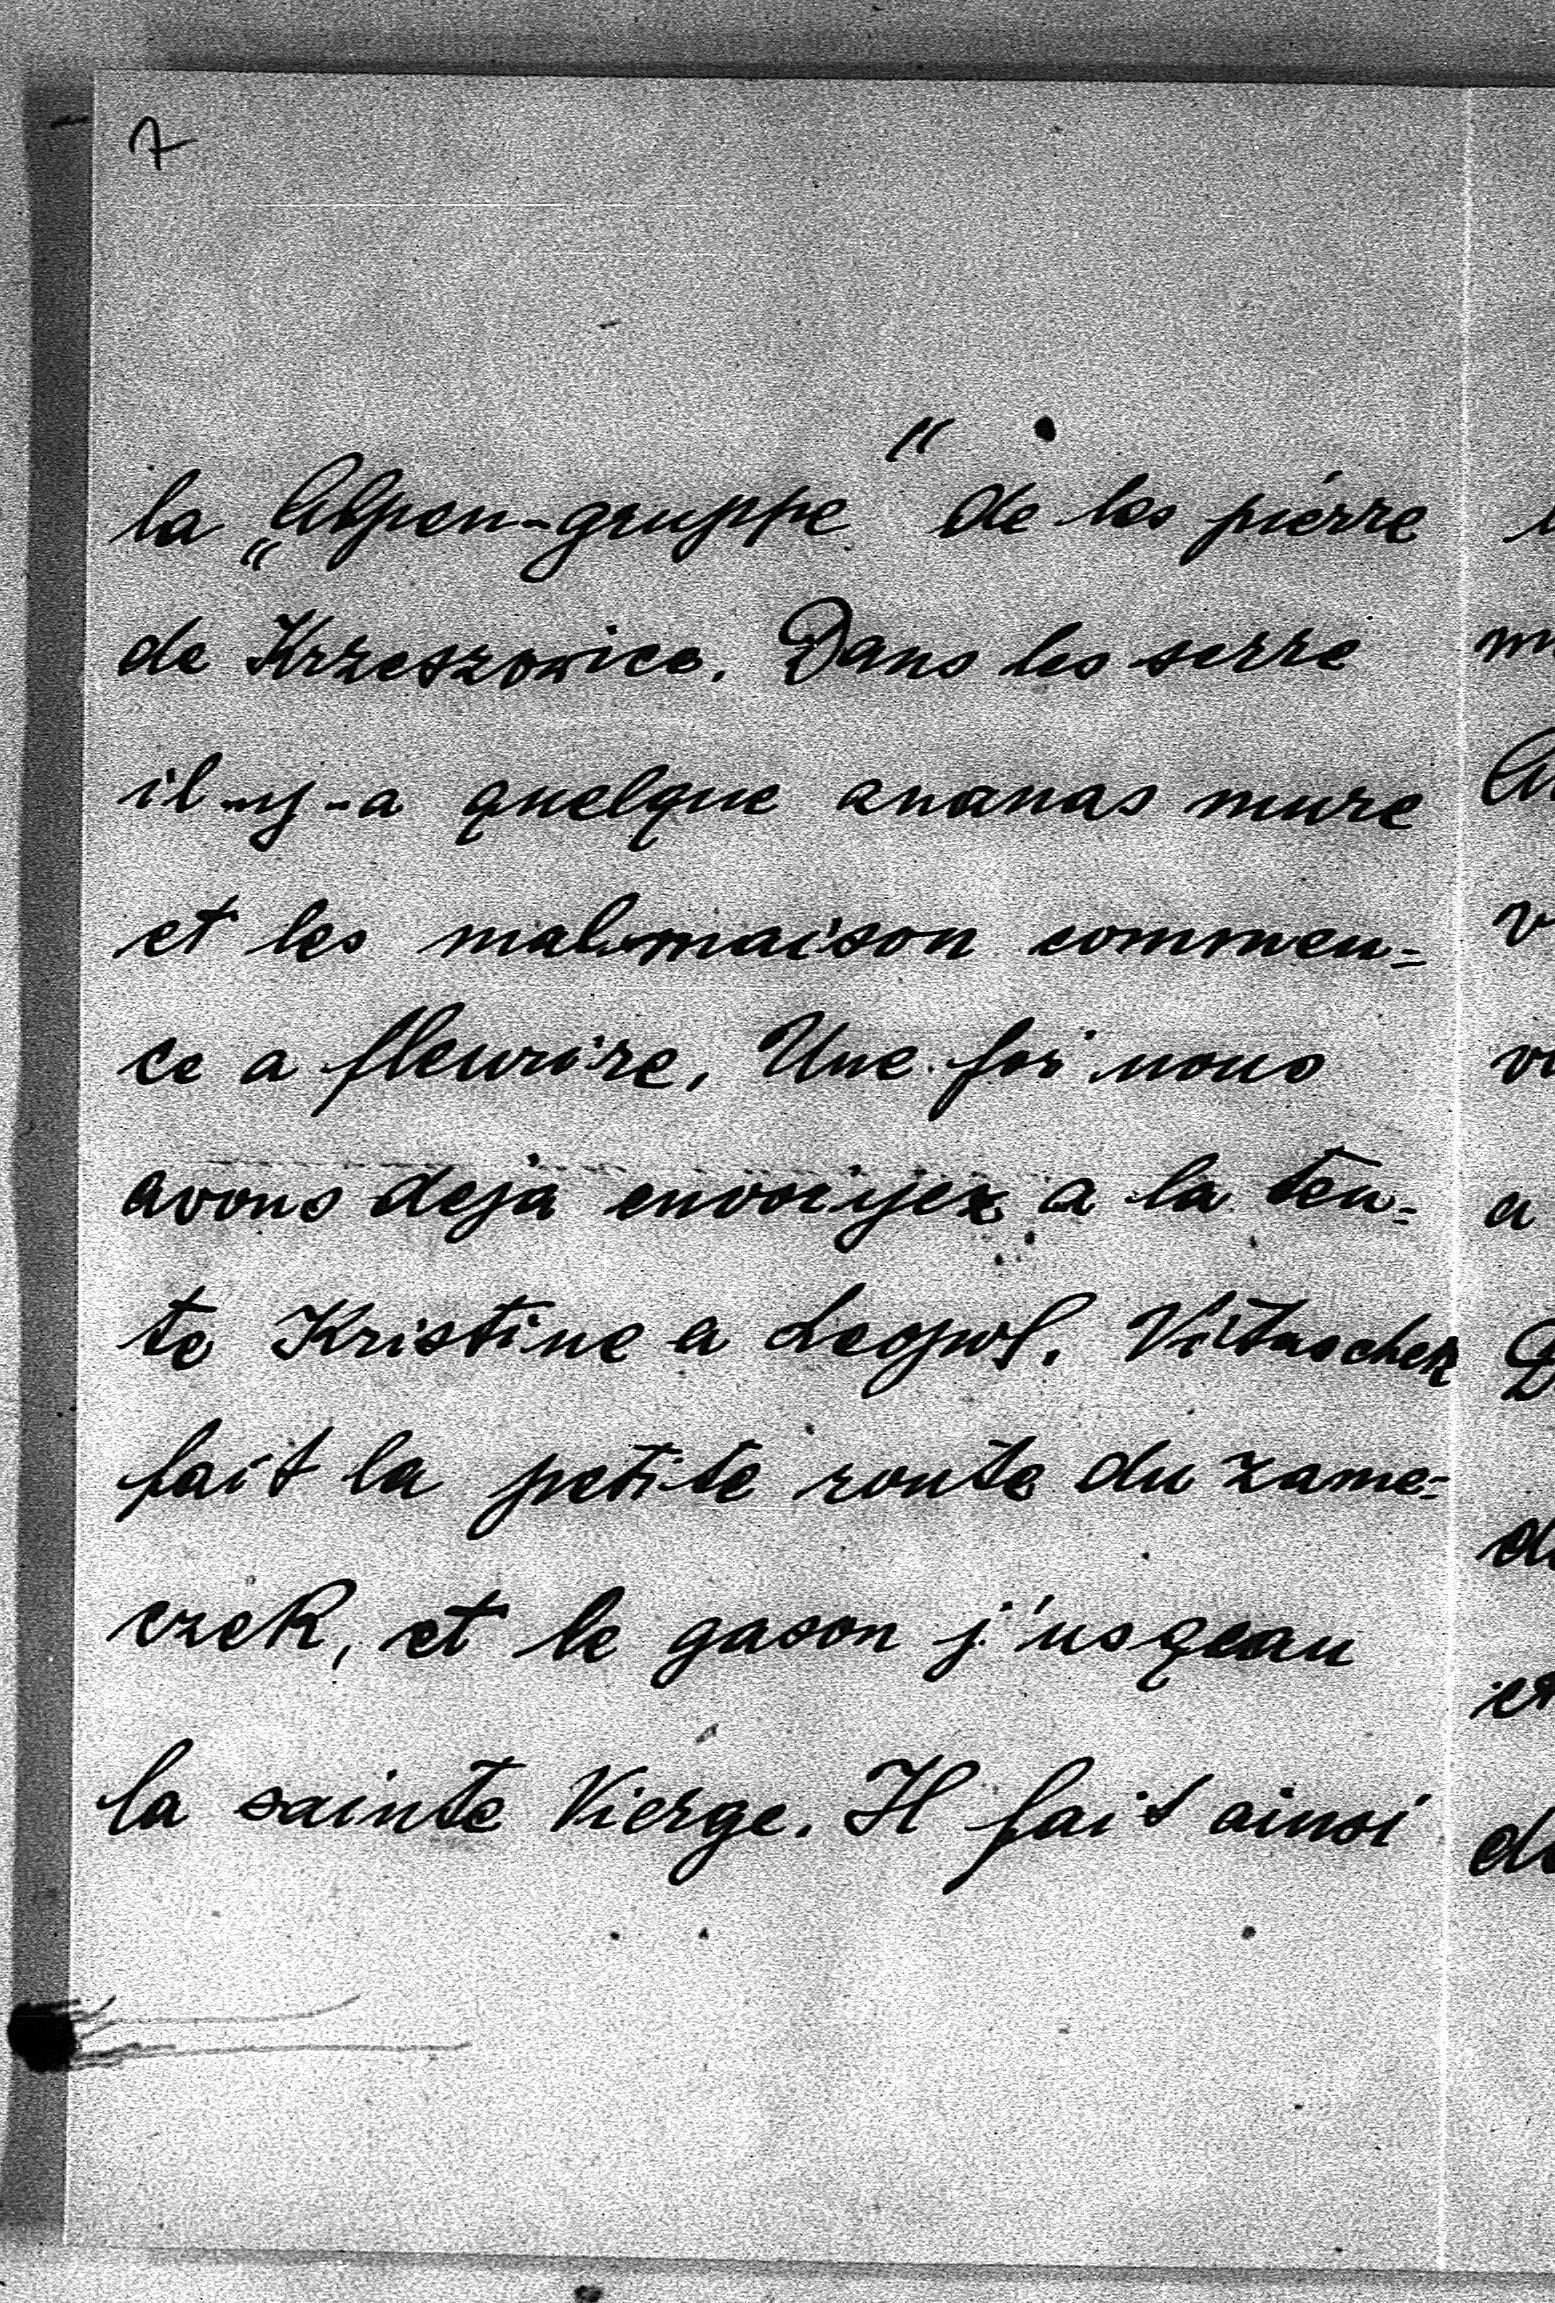 7
la „Alpen-gruppe" de les pierre
de Krzeszowice. Dans les serre
il-y-a quelque ananas mure
et les mal-maison commen=
ce a fleurire. Une foi nous
avons deja envoiyez a la ten=
te Kristine a Leopol. Vitaschek
fait la petite route du zame=
czek, et le gason j'usqeau
la sainte Vierge. Il fait ainsi